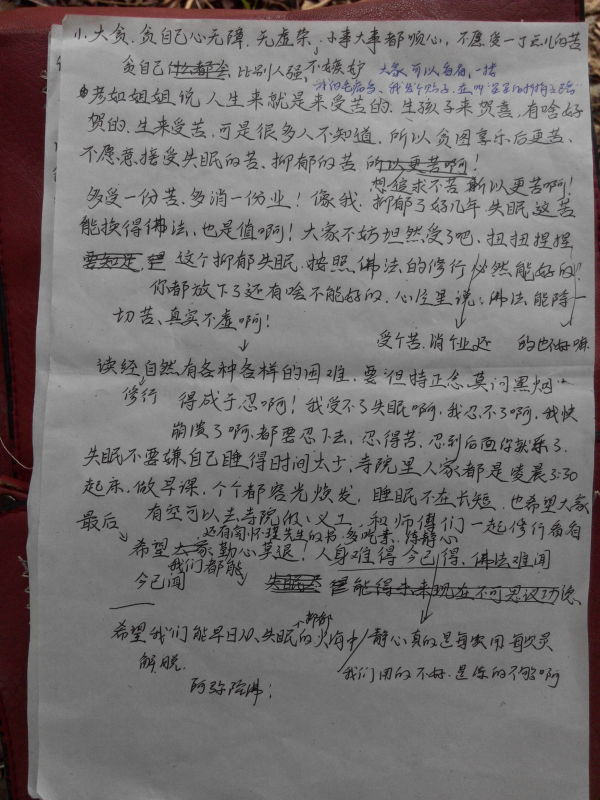 小大贪.贪自己心无障.无虚荣.小事大事都顺心,不愿受一丁点儿的苦
贪自己什么都会 比别人强,不嫉妒 大家可以看看,一样
考如姐姐说人生来就是来受苦的.生孩子来贺喜,有啥好
贺的.生来受苦,可是很多人不知道.所以贪图享乐后更苦、
不愿意接受失眠的苦、抑郁的苦 所以更苦啊!
想追求不苦 所以更苦啊!
多受一份苦、多消一份业!像我.抑郁了好几年 失眠 这苦
能换得佛法,也是值啊!大家不妨坦然受了吧、扭扭捏捏
这个抑郁失眠.按照佛法的修行 必然能好的!
你都放下了还有啥不能好的.心经里说:佛法能除一
切苦、真实不虚啊!
受个苦.消个业.还的也好嘛
读经自然有各种各样的困难,要但持正念,莫问黑烟
修行 得成于忍啊!我受不了失眠啊,我忍不了啊,我快
崩溃了啊.都要忍下去,忍得苦,忍到后面你就乐了.
失眠不要嫌自己睡得时间太少,寺院里人家都是凌晨3:30
起床,做早课,个个都容光焕发,睡眠不在长短.也希望大家
有空可以去寺院做义工,和师傅们一起修行看看
最后 还有南怀瑾先生的书.多吃素、炼静心
希望大家勤心莫退!人身难得今已得,佛法难闻
我们都能
今已闻 失眠 能得未来现在不可思议功德
希望我们能早日从失眠的火海中 静心真的是每次用每次灵
抑郁
解脱. 我们用的不好.是炼的不够啊
阿弥陀佛;